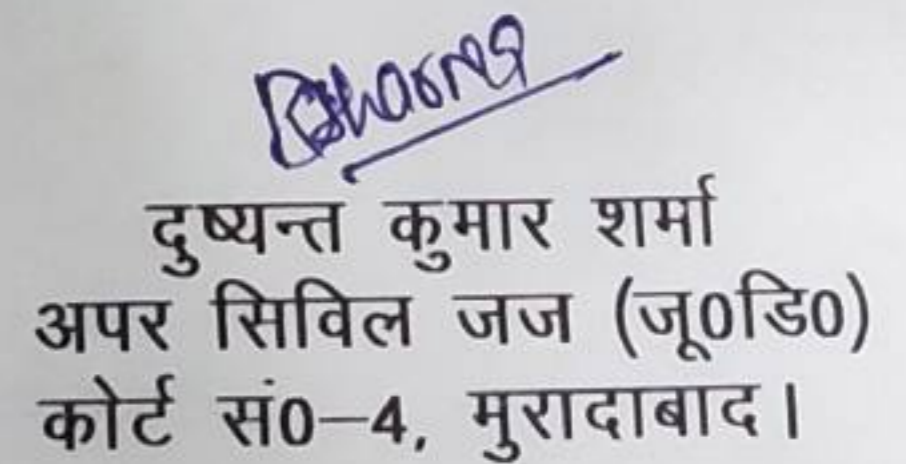 दुष्यन्त कुमार शर्मा
अपर सिविल जज (जू0डि0)
कोर्ट सं0-4, मुरादाबाद।